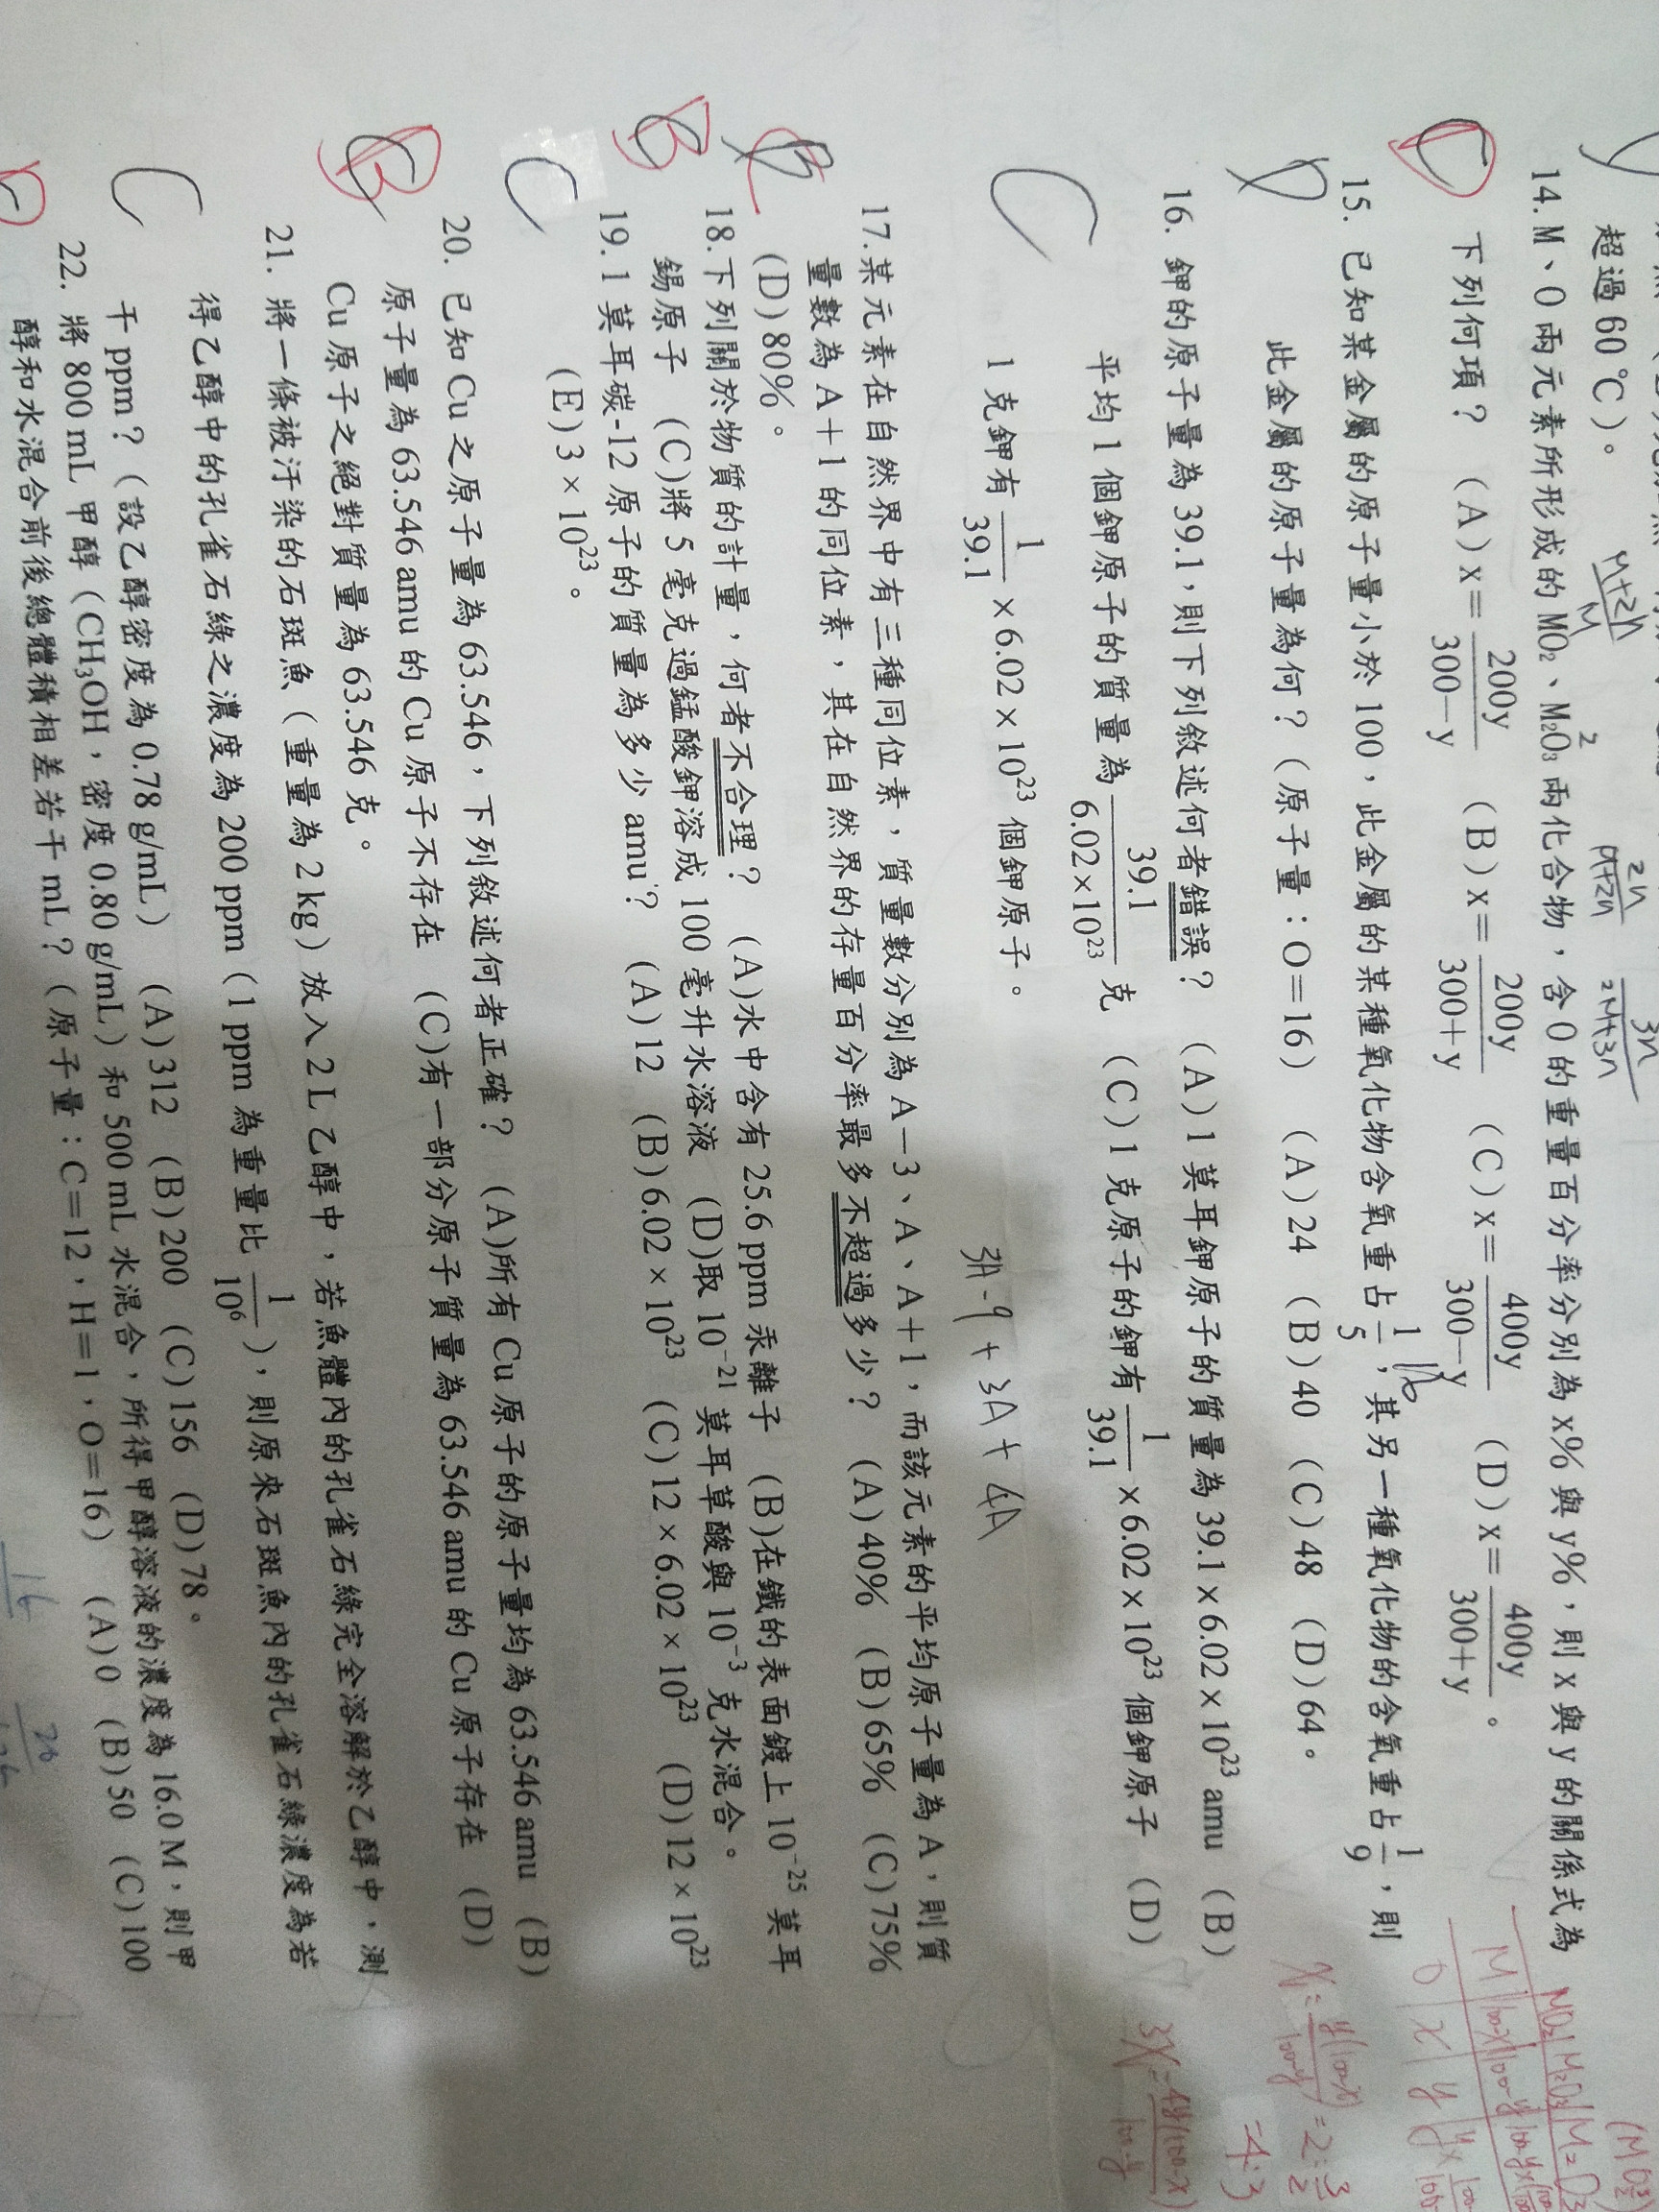 超過 60 ℃）。
14. M、O 兩元素所形成的 MO₂、M₂O₃ 兩化合物，含 O 的重量百分率分別為 x% 與 y%，則 x 與 y 的關係式為
下列何項？ （A）x＝200y/300－y （B）x＝200y/300＋y （C）x＝400y/300－y （D）x＝400y/300＋y 。
15. 已知某金屬的原子量小於 100，此金屬的某種氧化物含氧重占 1/5，其另一種氧化物的含氧重占 1/9，則
此金屬的原子量為何？（原子量：O＝16） （A）24 （B）40 （C）48 （D）64。
16. 鉀的原子量為 39.1，則下列敘述何者錯誤？ （A）1 莫耳鉀原子的質量為 39.1×6.02×10²³ amu （B）
平均 1 個鉀原子的質量為 39.1/6.02×10²³ 克 （C）1 克原子的鉀有 1/39.1 ×6.02×10²³ 個鉀原子 （D）
1 克鉀有 1/39.1 ×6.02×10²³ 個鉀原子。
3A-9+3A+4A
17.某元素在自然界中有三種同位素，質量數分別為 A－3、A、A＋1，而該元素的平均原子量為 A，則質
量數為 A＋1 的同位素，其在自然界的存量百分率最多不超過多少？ （A）40% （B）65% （C）75%
（D）80%。
18.下列關於物質的計量，何者不合理？ （A)水中含有 25.6 ppm 汞離子 （B)在鐵的表面鍍上 10⁻²⁵ 莫耳
錫原子 （C)將 5 毫克過錳酸鉀溶成 100 毫升水溶液 （D)取 10⁻²¹ 莫耳草酸與 10⁻³ 克水混合。
19. 1 莫耳碳-12 原子的質量為多少 amu？ （A）12 （B）6.02×10²³ （C）12×6.02×10²³ （D）12×10²³
（E）3×10²³。
20. 已知 Cu 之原子量為 63.546，下列敘述何者正確？ （A)所有 Cu 原子的原子量均為 63.546 amu （B)
原子量為 63.546 amu 的 Cu 原子不存在 （C)有一部分原子質量為 63.546 amu 的 Cu 原子存在 （D)
Cu 原子之絕對質量為 63.546 克。
21. 將一條被汙染的石斑魚（重量為 2 kg）放入 2 L 乙醇中，若魚體內的孔雀石綠完全溶解於乙醇中，測
得乙醇中的孔雀石綠之濃度為 200 ppm（1 ppm 為重量比 1/10⁶），則原來石斑魚內的孔雀石綠濃度為若
干 ppm？（設乙醇密度為 0.78 g/mL） （A）312 （B）200 （C）156 （D）78。
22. 將 800 mL 甲醇（CH₃OH，密度 0.80 g/mL）和 500 mL 水混合，所得甲醇溶液的濃度為 16.0 M，則甲
醇和水混合前後總體積相差若干 mL？（原子量：C＝12，H＝1，O＝16） （A）0 （B）50 （C）100